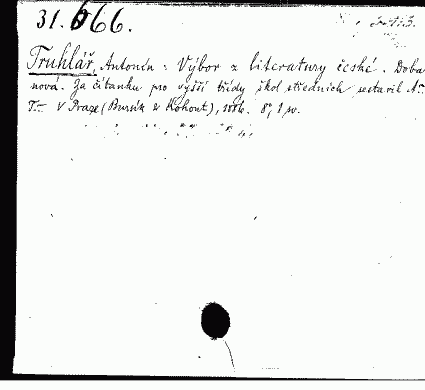 31.666.
Truhlář, Antonín : Výbor z literatury české. Doba
nová. Za čítanku pro vyšší třídy škol středních sestavil A–
T– V Praze (Bursík & Kohout), 1886. 8°, 1 sv.